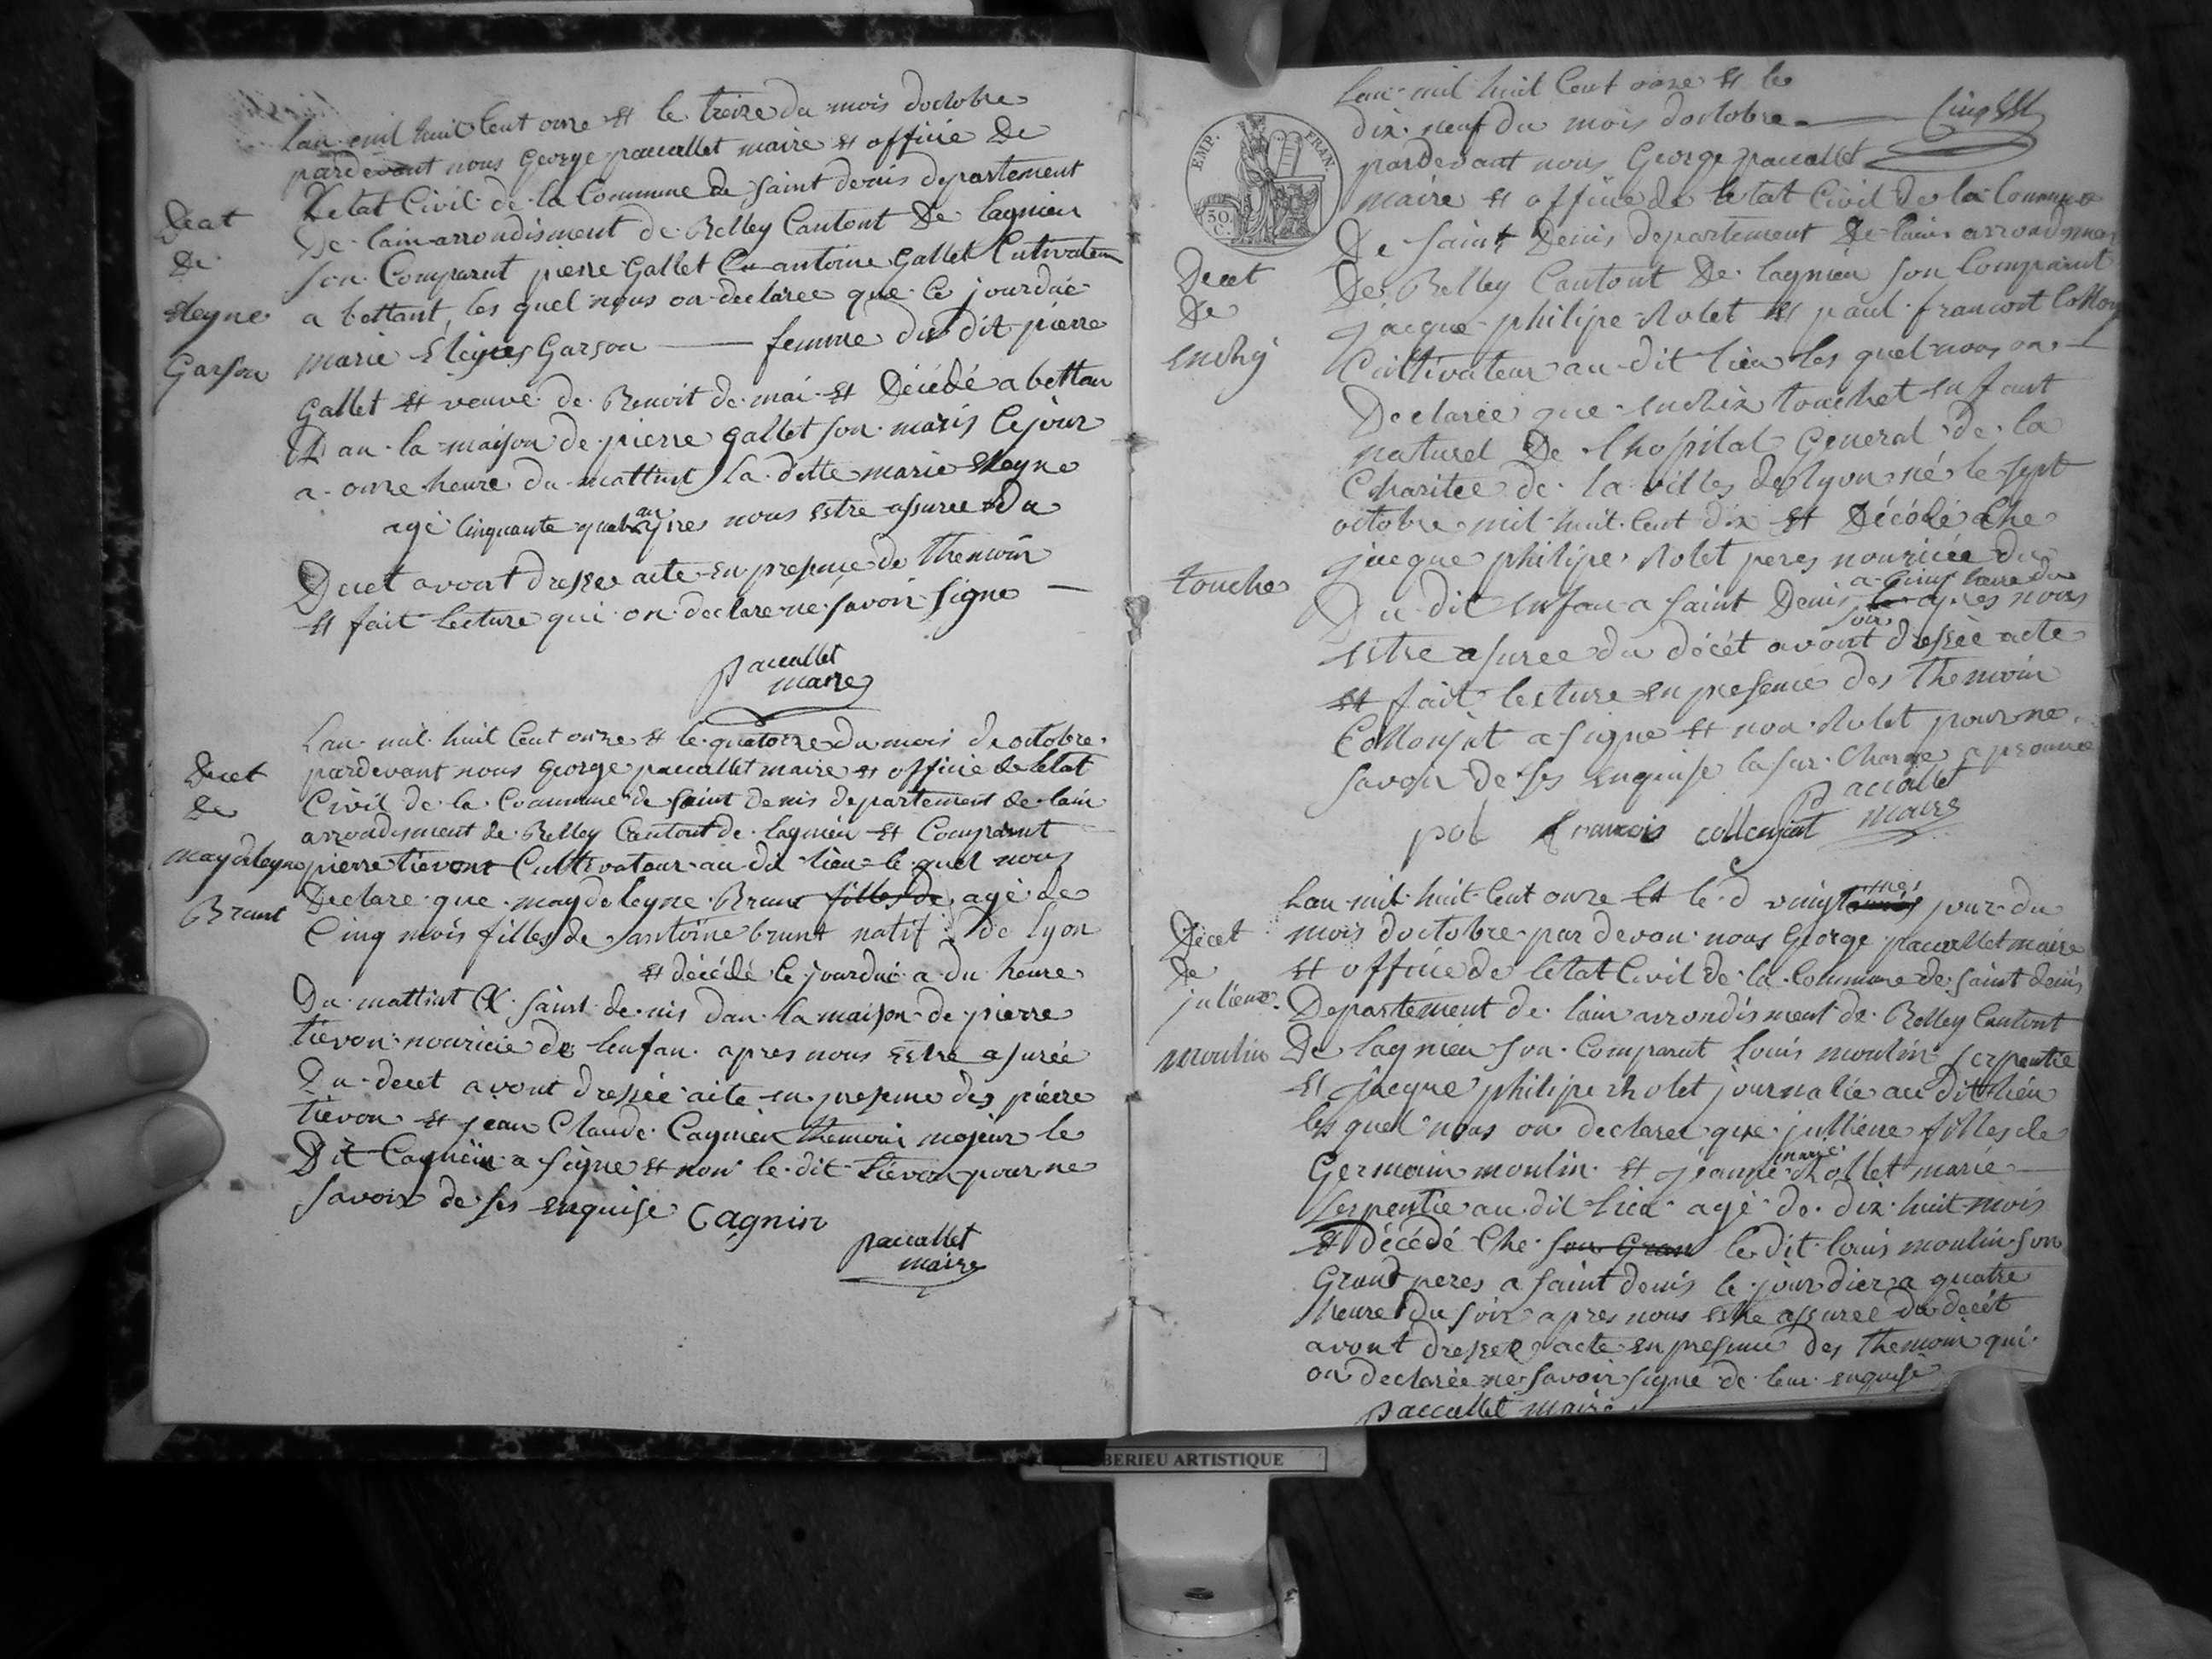 Lan mil huit Cent onze et le treize du mois doctobre
pardevant nous George paccallet maire et officie De
Letat Civil de la Commune de saint denis departement
De lain arrondisment de Belley Cantont De lagnieu
son Comparut pierre Gallet antoine Gallet Cutivateur
a bettant les quel nous on declaree que le jourdué
marie Garson femme du dit pierre
Gallet et veuve de Benoit de mai et Décédé a bettan
Dan la maison de pierre gallet son maris le jour
a onze heure du mattint la ditte marie
agé Cinquante quatre an apres nous estre assuree du
Decet avont dresse acte en presence de Themoin
et fait lecture qui on declare ne savoir signe
paccallet
maire
Decat
De
Garson
Lan mil huit Cent onze et le quatorze du mois doctobre
pardevant nous George paccallet maire et officie de letat
Civil de la Commune de saint denis departement de lain
arrondisment de Belley Cantont de lagnieu et Comparut
pierre tievont Cultivateur au dit lieu le quel nous
Declare que maydeleyne Brunt filles de agé de
Cinq mois filles de antoine brunt natif de lyon
et décédé le jourdué a du heure
Du mattint a saint denis dan la maison de pierre
tievon nouricie de lenfan apres nous estre asurée
Du decet avont dressée acte en presence des pierre
tievon et jean Claude Cagnien themoin majeur le
Dit Cagnien a signe et non le dit tievon pour ne
savoir de ses enquise Cagnin
paccallet
maire
Decet
De
maydeleyne
Brunt
EMP. FRAN
50 C.
Lan mil huit Cent onze et le
dix neuf du mois doctobre
pardevant nous George paccallet
maire et officie de letat Civil de la Commune
De saint Denis departement De lain
De Belley Cantont De lagnieu son Comparut
jacque philipe Rolet et paul francoit
Cultivateur au dit lieu les quel nous on
Declarée que touchet enfant
naturel De lhopital General de la
Charitee de la villes de lyon né le sept
octobre mil huit Cent dix et Décédé Che
jacque philipe Rolet peres nouriciée du
Du dit enfan a saint Denis a cinq heure du
soir apres nous
estre asuree du décét avont dressée acte
et fait lecture en presence des Themoin
Collonjat a signe et non Rolet pour ne
savoir de ses enquise la sur Charge aprouvée
paccallet
maire
pol francois collonjat
Decet
De
touche
Lan mil huit Cent onze et le d vingt jour du
mois doctobre par devan nous George paccallet maire
et officie de letat Civil de la Commune de saint denis
Departement de lain arrondisment de Belley Cantont
De lagnieu son Comparut Louis moulin serpentie
et jacque philipe Rholet journalie au dit lieu
les quel nous on declaree que julliene filles de
Germain moulin et jeanne marie Rhollet marie
serpentie au dit lieu agé de dix huit mois
et Décédé Che son Gran le dit louis moulin son
Grand peres a saint denis le jour dier a quatre
heure du soir apres nous estre assuree du decét
avont dressee acte en presence des Themoin qui
on declarée ne savoir signe de leur enquise
paccallet maire
Décet
De
juliene
moulin
BERIEU ARTISTIQUE